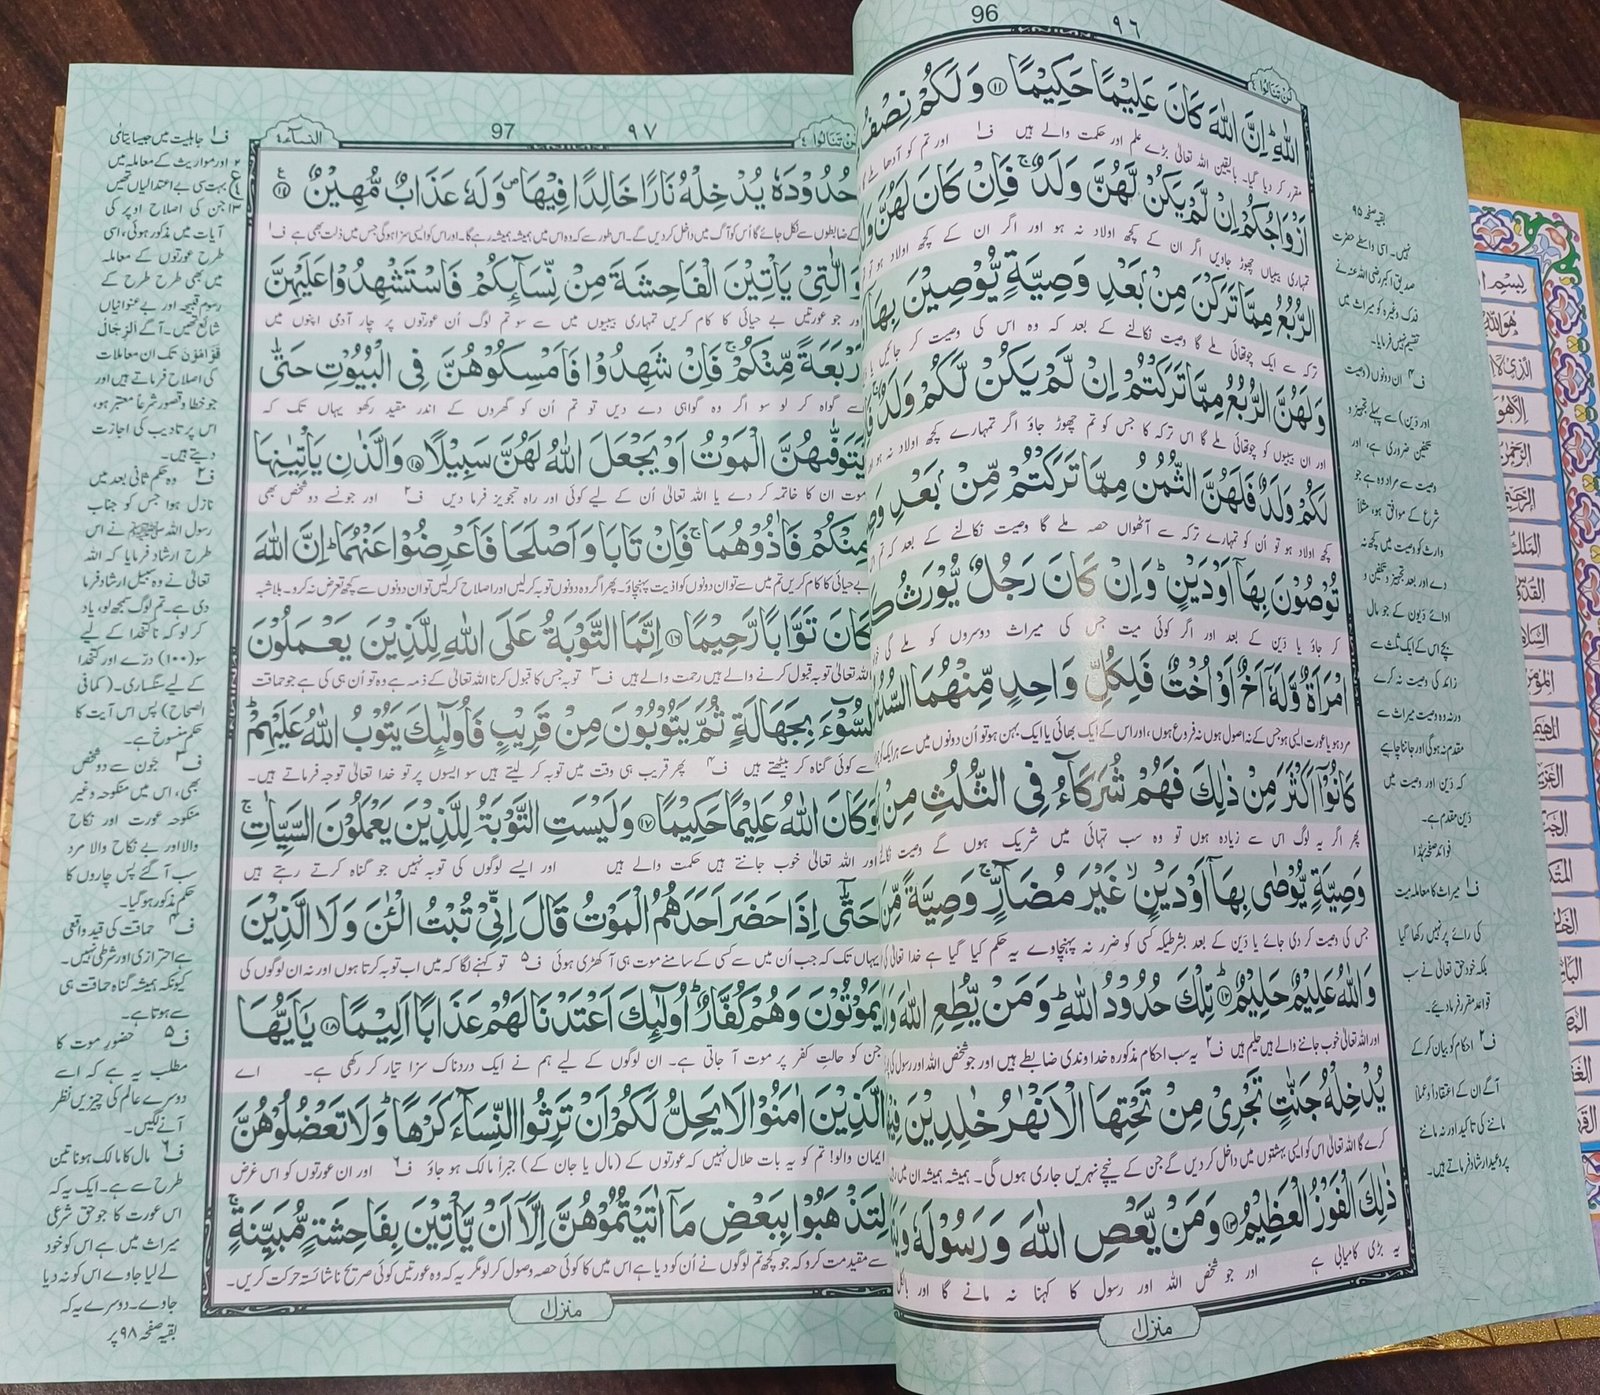 96
٩٦
لن تنالوا ٤
اللهِ ؕ اِنَّ اللهَ كَانَ عَلِيْمًا حَكِيْمًا ۝١١ وَلَكُمْ نِصْفُ
مقرر کر دیا گیا۔ بالیقین اللہ تعالیٰ بڑے علم اور حکمت والے ہیں ف۱ اور تم کو آدھا ملے گا
اَزْوَاجُكُمْ اِنْ لَّمْ يَكُنْ لَّهُنَّ وَلَدٌ ۚ فَاِنْ كَانَ لَهُنَّ
تمہاری بیبیاں چھوڑ جاویں اگر ان کے کچھ اولاد نہ ہو اور اگر ان کے کچھ اولاد ہو تو
الرُّبُعُ مِمَّا تَرَكْنَ مِنْۢ بَعْدِ وَصِيَّةٍ يُّوْصِيْنَ بِهَاۤ
ترکہ سے ایک چوتھائی ملے گا وصیت نکالنے کے بعد کہ وہ اس کی وصیت کر جائیں یا
وَلَهُنَّ الرُّبُعُ مِمَّا تَرَكْتُمْ اِنْ لَّمْ يَكُنْ لَّكُمْ وَلَدٌ ۚ
اور ان بیبیوں کو چوتھائی ملے گا اس ترکہ کا جس کو تم چھوڑ جاؤ اگر تمہارے کچھ اولاد نہ ہو
لَكُمْ وَلَدٌ فَلَهُنَّ الثُّمُنُ مِمَّا تَرَكْتُمْ مِّنْۢ بَعْدِ
کچھ اولاد ہو تو اُن کو تمہارے ترکہ سے آٹھواں حصہ ملے گا وصیت نکالنے کے بعد کہ تم اس
تُوْصُوْنَ بِهَاۤ اَوْ دَيْنٍ ؕ وَاِنْ كَانَ رَجُلٌ يُّوْرَثُ
کر جاؤ یا دَین کے بعد اور اگر کوئی میت جس کی میراث دوسروں کو ملے گی خواہ
امْرَاَةٌ وَّلَهٗۤ اَخٌ اَوْ اُخْتٌ فَلِكُلِّ وَاحِدٍ مِّنْهُمَا
مرد ہو یا عورت ایسی ہو جس کے نہ اصول ہوں نہ فروع ہوں، اور اس کے ایک بھائی یا ایک بہن ہو تو اُن دونوں میں سے ہر ایک کو
كَانُوْۤا اَكْثَرَ مِنْ ذٰلِكَ فَهُمْ شُرَكَآءُ فِى الثُّلُثِ مِنْۢ
پھر اگر یہ لوگ اس سے زیادہ ہوں تو وہ سب تہائی میں شریک ہوں گے وصیت نکالنے
وَصِيَّةٍ يُّوْصٰى بِهَاۤ اَوْ دَيْنٍ ۙ غَيْرَ مُضَآرٍّ ۚ وَصِيَّةً مِّنَ
جس کی وصیت کر دی جائے یا دَین کے بعد بشرطیکہ کسی کو ضرر نہ پہنچاوے یہ حکم کیا گیا ہے خدا تعالیٰ کی
وَاللهُ عَلِيْمٌ حَلِيْمٌ ۝١٢ تِلْكَ حُدُوْدُ اللهِ ؕ وَمَنْ يُّطِعِ اللهَ
اور اللہ تعالیٰ خوب جاننے والے ہیں حلیم ہیں ف۲ یہ سب احکام مذکورہ خداوندی ضابطے ہیں اور جو شخص اللہ اور رسول کی
يُدْخِلْهُ جَنّٰتٍ تَجْرِىْ مِنْ تَحْتِهَا الْاَنْهٰرُ خٰلِدِيْنَ
کرے گا اللہ تعالیٰ اس کو ایسی بہشتوں میں داخل کر دیں گے جن کے نیچے نہریں جاری ہوں گی۔ ہمیشہ ہمیشہ ان میں
ذٰلِكَ الْفَوْزُ الْعَظِيْمُ ۝١٣ وَمَنْ يَّعْصِ اللهَ وَرَسُوْلَهٗ
یہ بڑی کامیابی ہے اور جو شخص اللہ اور رسول کا کہنا نہ مانے گا اور بالکل
منزل ۱
بقیہ صفحہ ۹۵
نہیں۔ اسی واسطے حضرت
صدیق اکبر رضی اللہ عنہ نے
فدک وغیرہ کو میراث میں
تقسیم نہیں فرمایا۔
ف۴ ان دونوں (وصیت
اور دَین) سے پہلے تجہیز و
تکفین ضروری ہے، اور
وصیت سے مراد وہ ہے جو
شرع کے موافق ہو، مثلاً
وارث کو وصیت میں کچھ نہ
دے اور بعد تجہیز و تکفین و
ادائے دیون کے جو مال
بچے اس کے ایک ثلث سے
زائد کی وصیت نہ کرے
ورنہ وہ وصیت میراث سے
مقدم نہ ہو گی اور جاننا چاہیے
کہ دَین اور وصیت میں
دَین مقدم ہے۔
فوائد صفحہ ہٰذا
ف۱ میراث کا معاملہ میت
کی رائے پر نہیں رکھا گیا
بلکہ خود حق تعالیٰ نے سب
قواعد مقرر فرما دیئے۔
ف۲ احکام کو بیان کر کے
آگے ان کے اعتقاداً و عملاً
ماننے کی تاکید اور نہ ماننے
پر وعید ارشاد فرماتے ہیں۔
97
٩٧
النساء ٤
لن تنالوا ٤
حُدُوْدَهٗ يُدْخِلْهُ نَارًا خَالِدًا فِيْهَا ۪ وَلَهٗ عَذَابٌ مُّهِيْنٌ ۝١٤
کے ضابطوں سے نکل جائے گا اُس کو آگ میں داخل کر دیں گے۔ اس طور سے کہ وہ اس میں ہمیشہ ہمیشہ رہے گا۔ اور اس کو ایسی سزا ہو گی جس میں ذلت بھی ہے ف۱
وَالّٰتِىْ يَاْتِيْنَ الْفَاحِشَةَ مِنْ نِّسَآئِكُمْ فَاسْتَشْهِدُوْا عَلَيْهِنَّ
اور جو عورتیں بے حیائی کا کام کریں تمہاری بیبیوں میں سے سو تم لوگ اُن عورتوں پر چار آدمی اپنوں میں
اَرْبَعَةً مِّنْكُمْ ۚ فَاِنْ شَهِدُوْا فَاَمْسِكُوْهُنَّ فِى الْبُيُوْتِ حَتّٰى
سے گواہ کر لو سو اگر وہ گواہی دے دیں تو تم اُن کو گھروں کے اندر مقید رکھو یہاں تک کہ
يَتَوَفّٰٮهُنَّ الْمَوْتُ اَوْ يَجْعَلَ اللهُ لَهُنَّ سَبِيْلًا ۝١٥ وَالَّذٰنِ يَاْتِيٰنِهَا
موت ان کا خاتمہ کر دے یا اللہ تعالیٰ اُن کے لیے کوئی اور راہ تجویز فرما دیں ف۲ اور جونسے دو شخص بھی
مِنْكُمْ فَاٰذُوْهُمَا ۚ فَاِنْ تَابَا وَاَصْلَحَا فَاَعْرِضُوْا عَنْهُمَا ؕ اِنَّ اللهَ
بے حیائی کا کام کریں تم میں سے تو ان دونوں کو اذیت پہنچاؤ۔ پھر اگر وہ دونوں توبہ کر لیں اور اصلاح کر لیں تو ان دونوں سے کچھ تعرض نہ کرو۔ بلا شبہ
كَانَ تَوَّابًا رَّحِيْمًا ۝١٦ اِنَّمَا التَّوْبَةُ عَلَى اللهِ لِلَّذِيْنَ يَعْمَلُوْنَ
اللہ تعالیٰ توبہ قبول کرنے والے ہیں رحمت والے ہیں ف۳ توبہ جس کا قبول کرنا اللہ تعالیٰ کے ذمہ ہے وہ تو اُن ہی کی ہے جو حماقت
السُّوْٓءَ بِجَهَالَةٍ ثُمَّ يَتُوْبُوْنَ مِنْ قَرِيْبٍ فَاُولٰٓئِكَ يَتُوْبُ اللهُ عَلَيْهِمْ ؕ
سے کوئی گناہ کر بیٹھتے ہیں ف۴ پھر قریب ہی وقت میں توبہ کر لیتے ہیں سو ایسوں پر تو خدا تعالیٰ توجہ فرماتے ہیں۔
وَكَانَ اللهُ عَلِيْمًا حَكِيْمًا ۝١٧ وَلَيْسَتِ التَّوْبَةُ لِلَّذِيْنَ يَعْمَلُوْنَ السَّيِّاٰتِ ۚ
اور اللہ تعالیٰ خوب جانتے ہیں حکمت والے ہیں اور ایسے لوگوں کی توبہ نہیں جو گناہ کرتے رہتے ہیں
حَتّٰۤى اِذَا حَضَرَ اَحَدَهُمُ الْمَوْتُ قَالَ اِنِّىْ تُبْتُ الْـٰٔنَ وَلَا الَّذِيْنَ
یہاں تک کہ جب اُن میں سے کسی کے سامنے موت ہی آ کھڑی ہوئی ف۵ تو کہنے لگا کہ میں اب توبہ کرتا ہوں اور نہ ان لوگوں کی
يَمُوْتُوْنَ وَهُمْ كُفَّارٌ ؕ اُولٰٓئِكَ اَعْتَدْنَا لَهُمْ عَذَابًا اَلِيْمًا ۝١٨ يٰۤاَيُّهَا
جن کو حالتِ کفر پر موت آ جاتی ہے۔ ان لوگوں کے لیے ہم نے ایک دردناک سزا تیار کر رکھی ہے۔ اے
الَّذِيْنَ اٰمَنُوْا لَا يَحِلُّ لَكُمْ اَنْ تَرِثُوا النِّسَآءَ كَرْهًا ؕ وَلَا تَعْضُلُوْهُنَّ
ایمان والو! تم کو یہ بات حلال نہیں کہ عورتوں کے (مال یا جان کے) جبراً مالک ہو جاؤ ف۶ اور ان عورتوں کو اس غرض
لِتَذْهَبُوْا بِبَعْضِ مَاۤ اٰتَيْتُمُوْهُنَّ اِلَّاۤ اَنْ يَّاْتِيْنَ بِفَاحِشَةٍ مُّبَيِّنَةٍ ۚ
سے مقید مت کرو کہ جو کچھ تم لوگوں نے اُن کو دیا ہے اس میں کا کوئی حصہ وصول کر لو مگر یہ کہ وہ عورتیں کوئی صریح ناشائستہ حرکت کریں۔
منزل ۱
ف۱ جاہلیت میں جیسا یتامٰی
اور مواریث کے معاملہ میں
بہت سی بے اعتدالیاں تھیں
جن کی اصلاح اوپر کی
آیات میں مذکور ہوئی، اسی
طرح عورتوں کے معاملہ
میں بھی طرح طرح کے
رسوم قبیحہ اور بے عنوانیاں
شائع تھیں۔ آگے اَلرِّجَالُ
قَوّٰمُوْنَ تک ان معاملات
کی اصلاح فرماتے ہیں اور
جو خطا و قصور شرعاً معتبر ہو،
اس پر تادیب کی اجازت
دیتے ہیں۔
ف۲ وہ حکم ثانی بعد میں
نازل ہوا جس کو جناب
رسول اللہ ﷺ نے اس
طرح ارشاد فرمایا کہ اللہ
تعالیٰ نے وہ سبیل ارشاد فرما
دی ہے۔ تم لوگ سمجھ لو، یاد
کر لو کہ ناکتخدا کے لیے
سو (۱۰۰) درّے اور کتخدا
کے لیے سنگساری۔ (کما فی
الصحاح) پس اس آیت کا
حکم منسوخ ہے۔
ف۳ جون سے دو شخص
بھی، اس میں منکوحہ وغیر
منکوحہ عورت اور نکاح
والا اور بے نکاح والا مرد
سب آ گئے پس چاروں کا
حکم مذکور ہو گیا۔
ف۴ حماقت کی قید واقعی
ہے احترازی اور شرطی نہیں۔
کیونکہ ہمیشہ گناہ حماقت ہی
سے ہوتا ہے۔
ف۵ حضورِ موت کا
مطلب یہ ہے کہ اسے
دوسرے عالم کی چیزیں نظر
آنے لگیں۔
ف۶ مال کا مالک ہونا تین
طرح سے ہے۔ ایک یہ کہ
اس عورت کا جو حق شرعی
میراث میں ہے اس کو خود
لے لیا جاوے اس کو نہ دیا
جاوے۔ دوسرے یہ کہ
بقیہ صفحہ ۹۸ پر